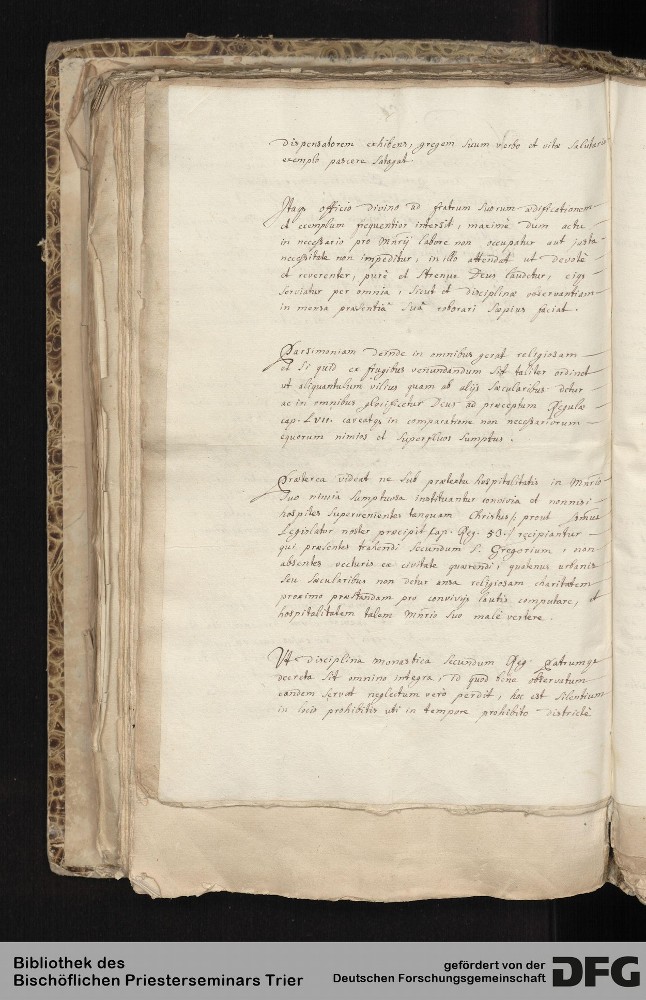 dispensatorem exhibens, gregem suum verbo et vitæ salutaris
exemplo pascere satagat.
Itaqȝ officio divino ad fratrum suorum ædificationem
et exemplum frequentior intersit, maximè dum actu
in necessario pro Mnrij labore non occupatur aut iusta
necessitate non impeditur, in illo attendat ut devotè
et reverenter, purè et strenue Deus laudetur, eiqȝ
serviatur per omnia, sicut et disciplinæ observantiam
in mensa præsentiâ suâ roborari sæpius faciat.
Parsimoniam deinde in omnibus gerat religiosam
et si quid ex frugibus venundandum sit taliter ordinet
ut aliquantulum vilius quam ab alijs sæcularibus detur
ac in omnibus glorificetur Deus ad præceptum Regulæ
cap. LVII. caveatqȝ in comparatione non necessariorum
equorum nimios et superfluos sumptus.
Præterea videat ne sub prætextu hospitalitatis in Mnrio
suo nimia sumptuosa instituantur convivia et nonnisi
hospites supervenientes tanquam Christus, prout
Legislator noster præcipit Cap. Reg. 53. recipiantur
qui præsentes trahendi secundum S. Gregorium, non
absentes vecturis ex civitate quærendi, quatenus urbanis
seu sæcularibus non detur ansa religiosam charitatem
proximo præstandam pro convivijs lautis computare, et
hospitalitatem talem Mnrio suo malè vertere.
Ut disciplina monastica secundum Reg. Patrumqȝ
decreta sit omnino integra, id quod bene observatum
eandem servat neglectum verò perdit, hoc est silentium
in locis prohibitis uti in tempore prohibito districtè
Bibliothek des
Bischöflichen Priesterseminars Trier
gefördert von der
Deutschen Forschungsgemeinschaft
DFG